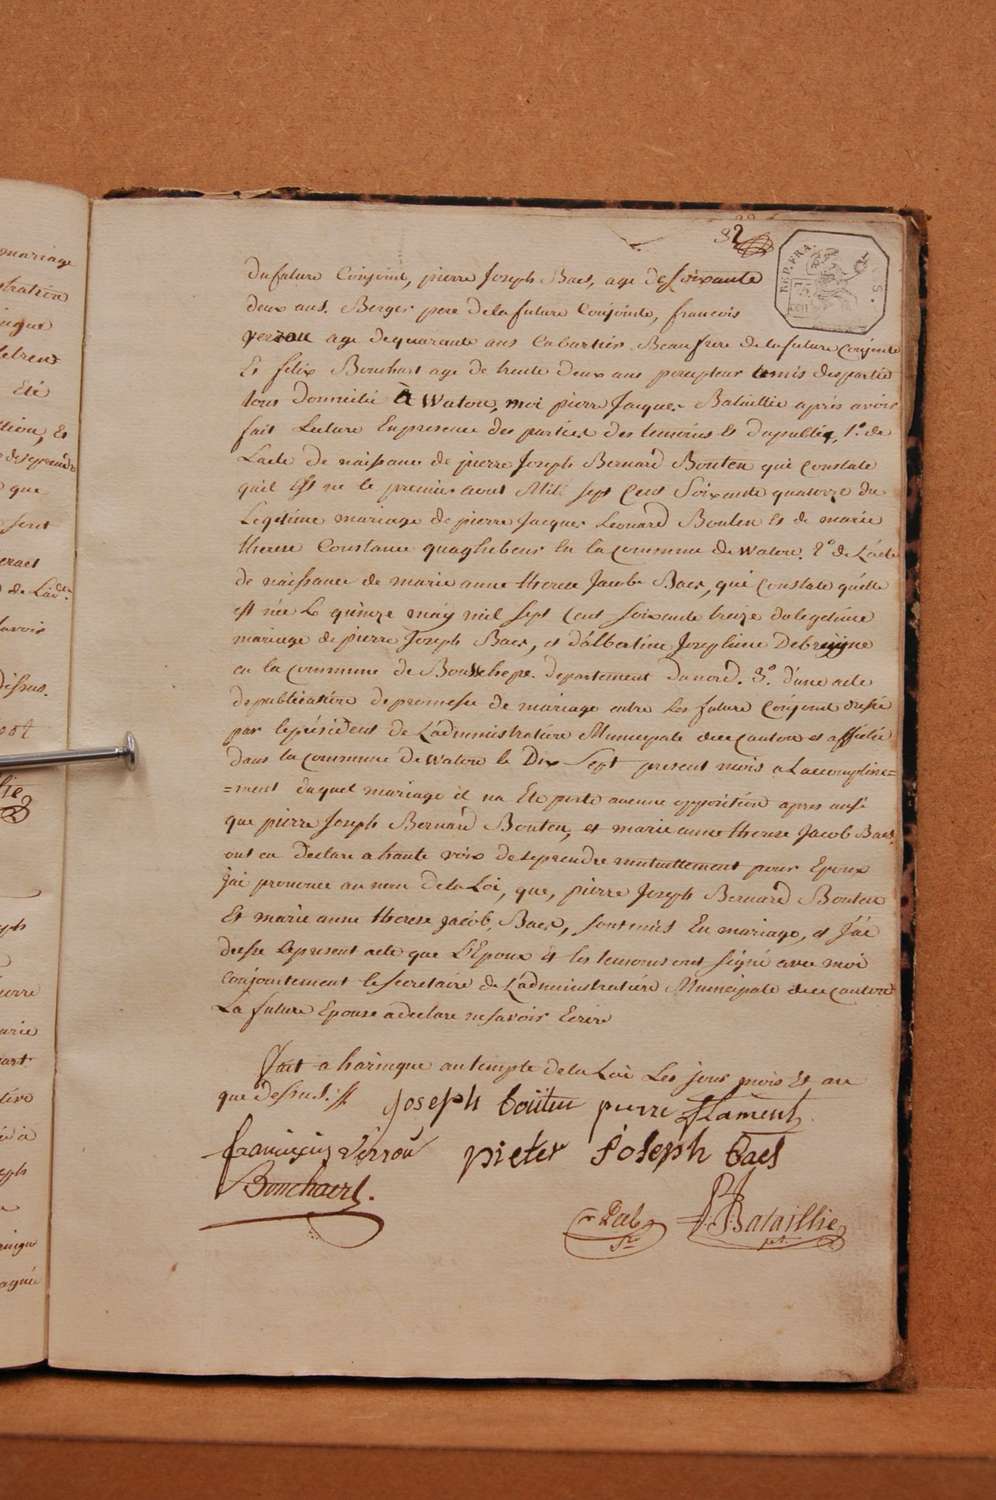 mariage
stration
Eté
ction, Et
que
sont
de Lad.
savoir
dessus.
32
REP. FRA.
du future Conjoint, pierre Joseph Baes, age de soixante
deux ans. Berger pere de la future Conjointe, francois
verrou age de quarante ans Cabartier Beaufrere de la future Conjointe
Et felix Bouchart age de trente deux ans percepteur amis des partie
tous Domicilié à Watou, moi pierre Jacques Bataillie après avoir
fait Lecture En presence des parties des temoins Et du public, 1.º de
Lacte de naissance de pierre Joseph Bernard Bouten qui Constate
quil Est né le premier aout Mil sept Cent Soixante quatorze du
Legitime mariage de pierre Jacques Leonard Bouten Et de marie
therese Constance quaghebeur En la Commune de watou. 2º de L'acte
de naissance de marie anne therese Jacobe Baes, qui Constate qu'elle
est née Le quinze may mil sept Cent soixante treize du legitime
mariage de pierre Joseph Baes, et d'albertine Josephine Debruyne
en la Commune de Boeschepe. departement du nord. 3.º d'une acte
de publication de promesse de mariage entre les future Conjoint dressé
par le président de L'administration Municipale dece Canton et affichée
dans la Commune de Watou le Dix Sept present mois a Laccomplisse=
=ment duquel mariage il na Eté porté aucune opposition apres aussi
que pierre Joseph Bernard Bouten, et marie anne therese Jacob Baes,
ont eu Declare a haute voix de se prendre mutuellement pour Epoux
J'ai prononcé au nom de la Loi, que, pierre Joseph Bernard Bouten
Et marie anne therese Jacob, Baes, sont unis En mariage, et J'ai
dressé le present acte que L'Epoux Et les temoins ont signé avec moi
Conjointement le secretaire de L'administration Municipale dece Canton
La future Epouse a declare ne savoir Ecrire
Fait a haringue au temple de la Loi Les jour mois Et an
que Dessus.
Joseph boüten pierre Flament
franciscus Verrou pieter Joseph baes
Bouchaert.
P J Bataillie